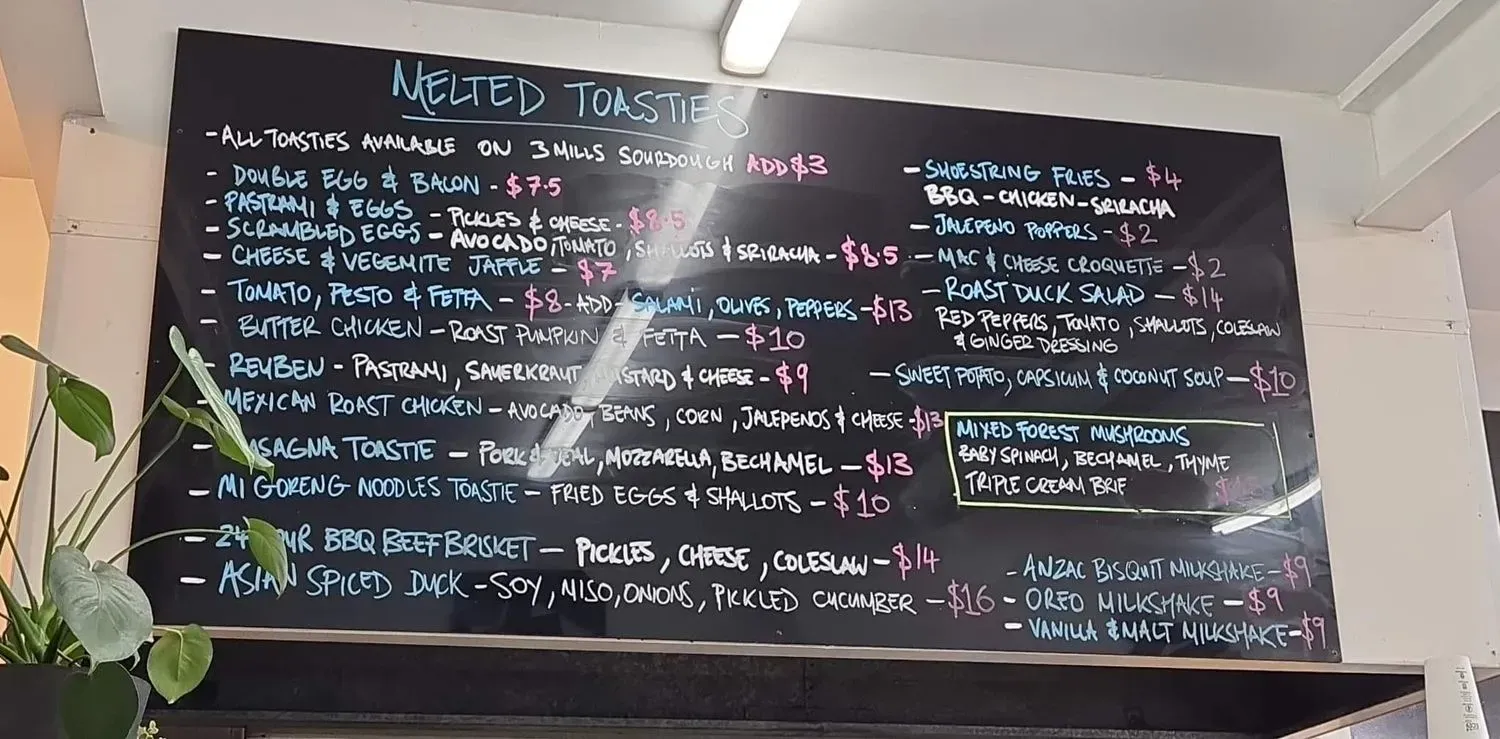 MELTED TOASTIES
-ALL TOASTIES AVAILABLE ON 3 MILLS SOURDOUGH ADD $3
- DOUBLE EGG & BACON - $7.5
- PASTRAMI & EGGS - PICKLES & CHEESE - $8.5
- SCRAMBLED EGGS - AVOCADO, TOMATO, SHALLOTS & SRIRACHA - $8.5
- CHEESE & VEGEMITE JAFFLE - $7
- TOMATO, PESTO & FETTA - $8 - ADD - SALAMI, OLIVES, PEPPERS - $13
- BUTTER CHICKEN - ROAST PUMPKIN & FETTA - $10
- REUBEN - PASTRAMI, SAUERKRAUT, MUSTARD & CHEESE - $9
- MEXICAN ROAST CHICKEN - AVOCADO, BEANS, CORN, JALEPENOS & CHEESE - $13
- LASAGNA TOASTIE - PORK & VEAL, MOZZARELLA, BECHAMEL - $13
- MI GORENG NOODLES TOASTIE - FRIED EGGS & SHALLOTS - $10
- 24 HOUR BBQ BEEF BRISKET - PICKLES, CHEESE, COLESLAW - $14
- ASIAN SPICED DUCK - SOY, NISO, ONIONS, PICKLED CUCUMBER - $16
- SHOESTRING FRIES - $4
BBQ - CHICKEN - SRIRACHA
- JALEPENO POPPERS - $2
- MAC & CHEESE CROQUETTE - $2
- ROAST DUCK SALAD - $14
RED PEPPERS, TOMATO, SHALLOTS, COLESLAW
& GINGER DRESSING
- SWEET POTATO, CAPSICUM & COCONUT SOUP - $10
MIXED FOREST MUSHROOMS
BABY SPINACH, BECHAMEL, THYME
TRIPLE CREAM BRIE
- ANZAC BISQUIT MILKSHAKE - $9
- OREO MILKSHAKE - $9
- VANILLA & MALT MILKSHAKE - $9